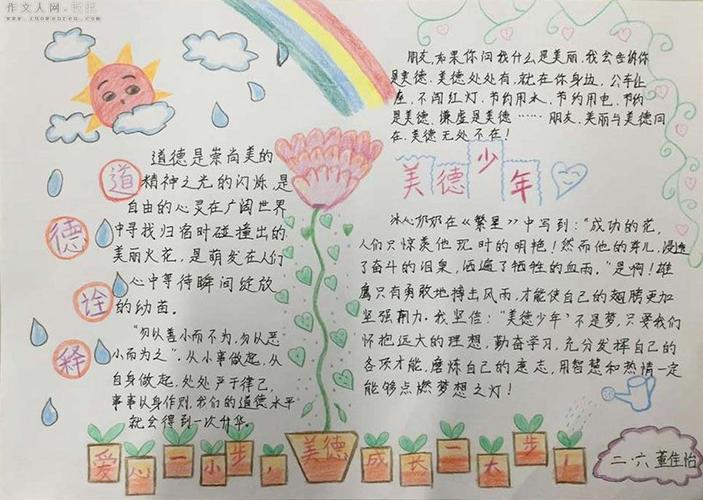 作文人网
www.zuowenren.com
道德诠释
道德是崇尚美的
精神之光的闪烁,是
自由的心灵在广阔世界
中寻找归宿时碰撞出的
美丽火花,是萌发在人们
心中等待瞬间绽放
的幼苗。
"勿以善小而不为,勿以恶
小而为之",从小事做起,从
自身做起,处处严于律己,
事事以身作则,我们的道德水平
就会得到一次升华。
朋友,如果你问我什么是美丽,我会告诉你
是美德,美德处处有,就在你身边,公车让
座,不闯红灯,节约用水,节约用电,节约
是美德,谦虚是美德……朋友,美丽与美德同
在,美德无处不在!
美德少年
冰心奶奶在《繁星》中写到:"成功的花,
人们只惊羡他现时的明艳!然而他的芽儿,浸透
了奋斗的泪泉,洒遍了牺牲的血雨。"是啊!雄
鹰只有勇敢地搏击风雨,才能使自己的翅膀更加
坚强韧力.我坚信:"美德少年"不是梦,只要我们
怀抱远大的理想,勤奋学习,充分发挥自己的
各项才能,磨炼自己的意志,用智慧和热情一定
能够点燃梦想之灯!
爱心一小步,美德成长一大步!
二.六 董佳怡